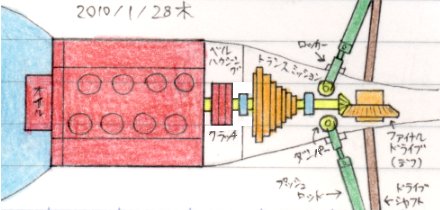 2010/1/28木
ロッカー
ベル
ハウジン
グ
トランスミッション
オイル
クラッチ
ダンパー
ファイナル
ドライブ
(デフ)
プッシュ
ロッド
ドライブ
シャフト